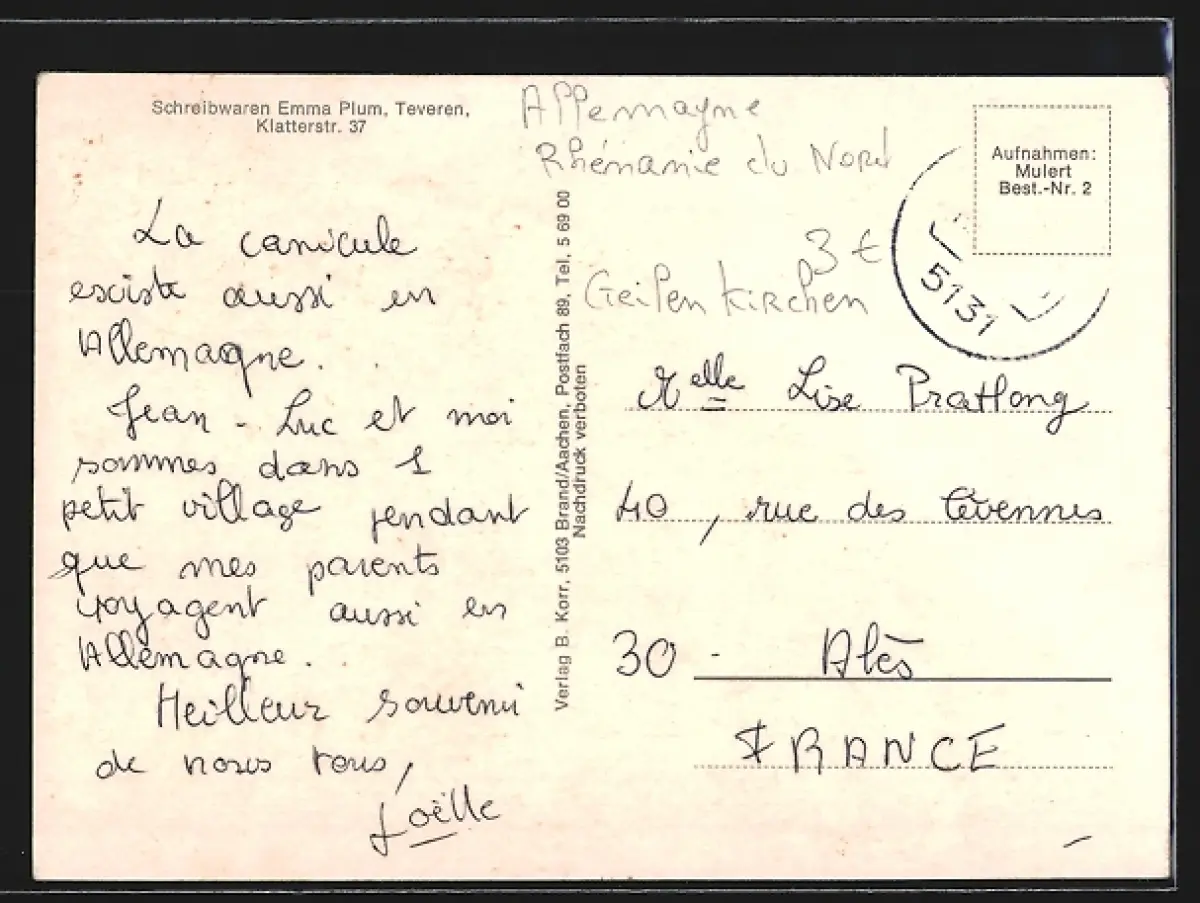 Schreibwaren Emma Plum, Teveren,
Klatterstr. 37
Allemagne
Rhénanie du Nord
3 €
Geilenkirchen
Aufnahmen:
Mulert
Best.-Nr. 2
5131
La canicule
existe aussi en
Allemagne.
Jean-Luc et moi
sommes dans 1
petit village pendant
que mes parents
voyagent aussi en
Allemagne.
Meilleur souvenir
de nous tous,
Joëlle
Verlag B. Korr, 5103 Brand/Aachen, Postfach 89, Tel. 5 69 00
Nachdruck verboten
Melle Lise Pratlong
40, rue des Cévennes
30 - Alès
FRANCE